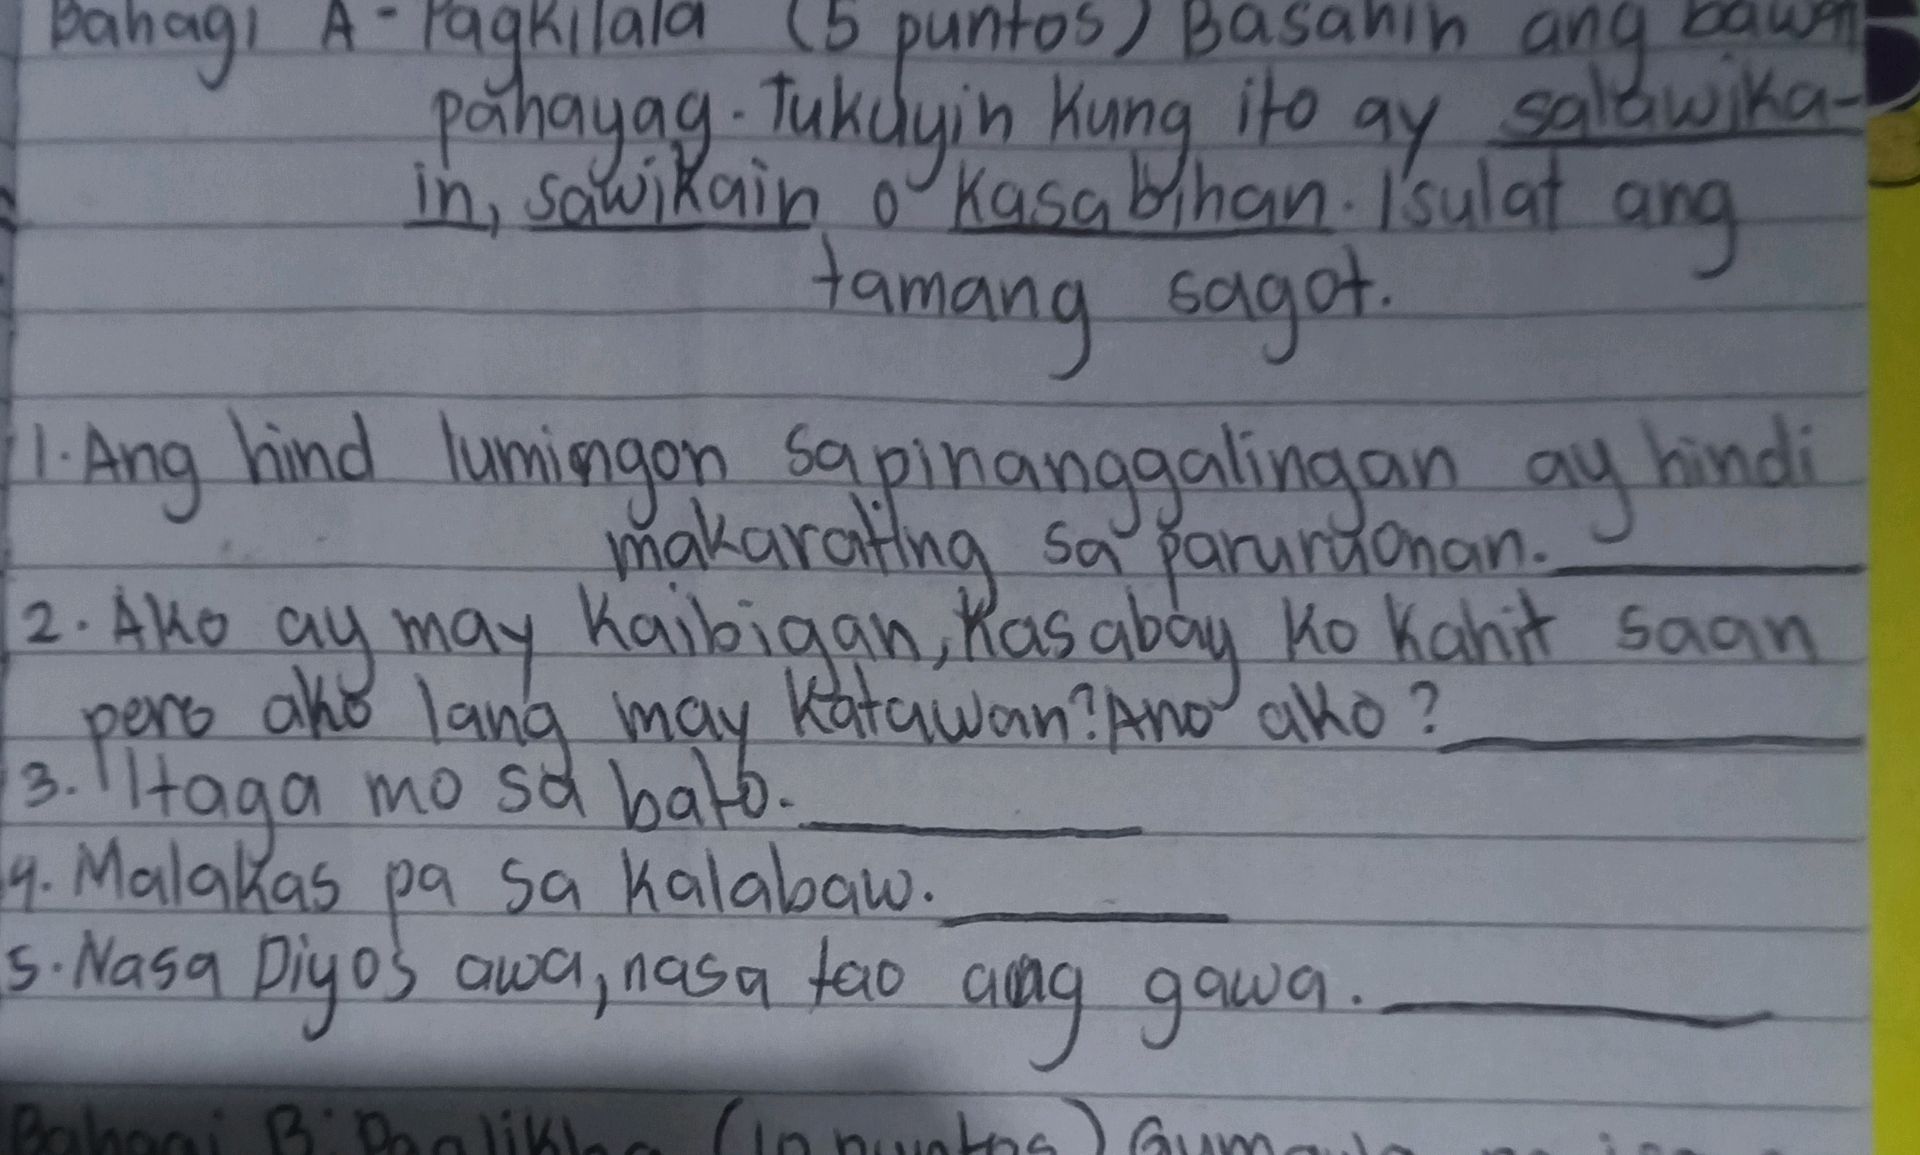 Bahagi A - Pagkilala (5 puntos) Basahin ang bawat
pahayag. Tukuyin kung ito ay salawika-
in, sawikain o kasabihan. Isulat ang
tamang sagot.
1. Ang hind lumingon sa pinanggalingan ay hindi
makarating sa paruruonan.
2. Ako ay may kaibigan, kasabay ko kahit saan
pero ako lang may katawan? Ano ako?
3. Itaga mo sa bato.
4. Malakas pa sa kalabaw.
5. Nasa Diyos awa, nasa tao ang gawa.
Bahagi B: Paglikha (10 puntos)